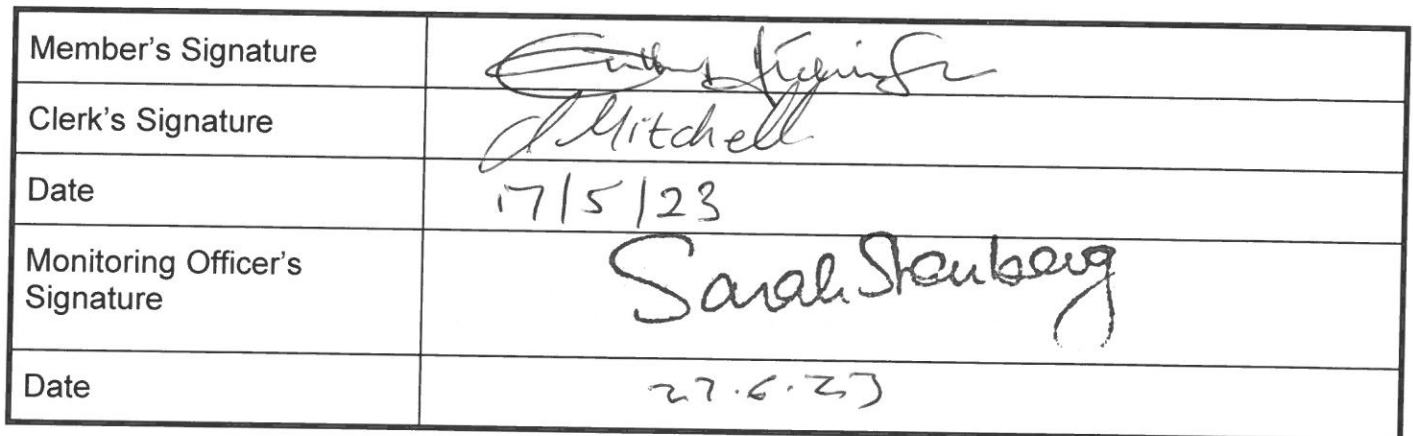 Member's Signature
Clerk's Signature
J Mitchell
Date
17/5/23
Monitoring Officer's
Signature
Sarah Stenberg
Date
27.6.23